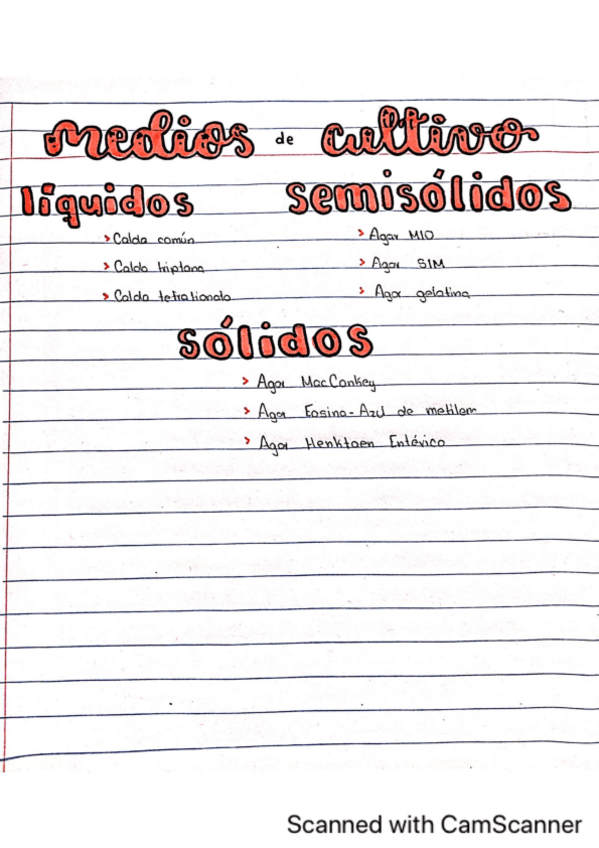 medios de cultivo
líquidos
> Caldo común
> Caldo triptona
> Caldo tetrationato
semisólidos
> Agar MIO
> Agar SIM
> Agar gelatina
sólidos
> Agar MacConkey
> Agar Eosina-Azul de metilem
> Agar Henktoen Entérico
Scanned with CamScanner